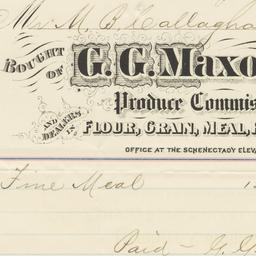 Mr. M. B. Callagha
BOUGHT OF G. G. MAXO
Produce Commis
AND DEALERS IN FLOUR, GRAIN, MEAL, F
OFFICE AT THE SCHENECTADY ELEV
Fine Meal 1
Paid - G. G